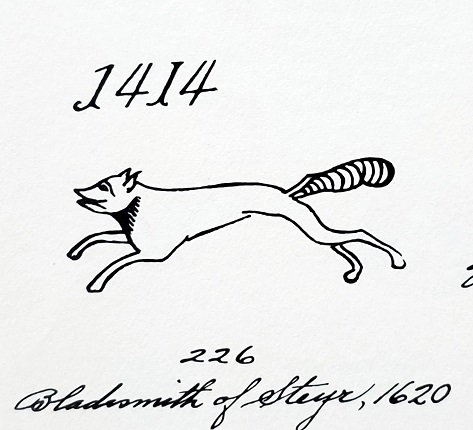 1414
226
Bladesmith of Steyr, 1620